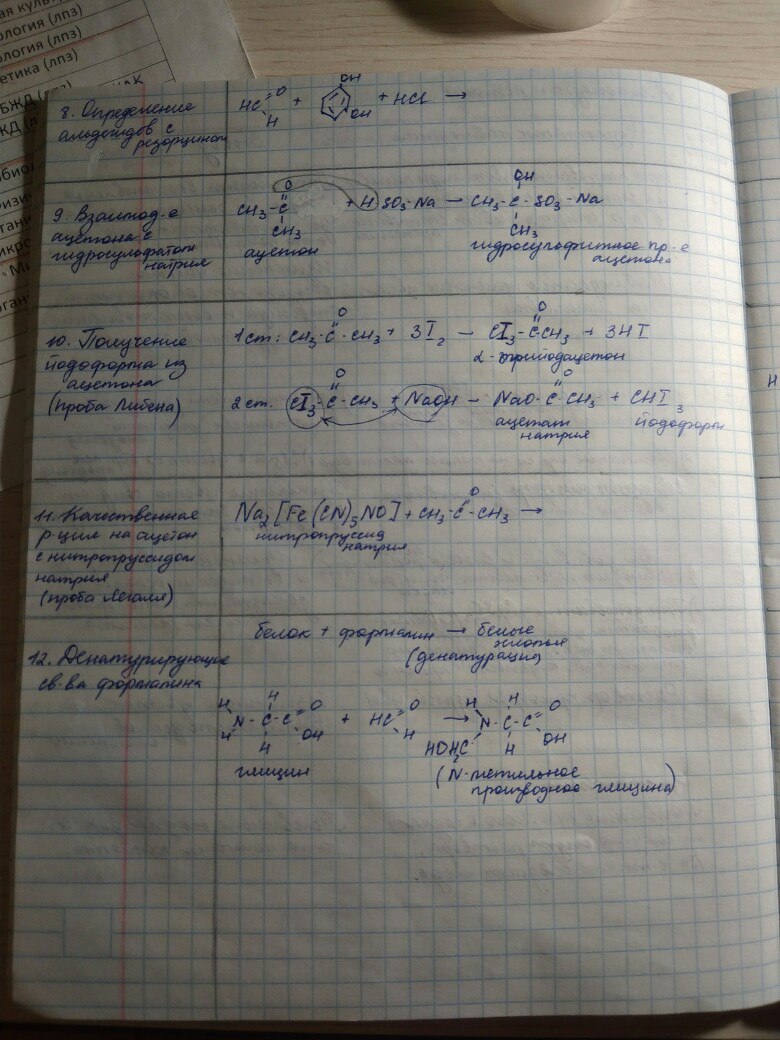 ология (лпз)
ология (лпз)
етика (лпз)
БЖД (л
КД (л
8. Определение
альдегидов с
резорцином
HC=O H + OH OH + HCl →
9. Взаимод-е
ацетона с
гидросульфатом
натрия
O
CH3-C + H SO3-Na — CH3-C-SO3-Na
CH3
ацетон
OH
CH3
гидросульфитное пр-е
ацетона
10. Получение
йодоформа из
ацетона
(проба Либена)
1 ст: CH3-C(=O)-CH3 + 3I2 — CI3-C(=O)CH3 + 3HI
α-трийодацетон
2 ст. CI3-C(=O)-CH3 + NaOH — NaO-C(=O)CH3 + CHI3
ацетат
натрия
йодоформ
11. Качественная
р-ция на ацетон
с нитропруссидом
натрия
(проба Легаля)
Na2[Fe(CN)5NO] + CH3-C(=O)-CH3 →
нитропруссид
натрия
12. Денатурирующие
св-ва формалина
белок + формалин → белые
хлопья
(денатурация)
H H
N-C-C=O + HC=O → N-C-C=O
H H OH H HOH2C H OH
глицин
(N-метильное
производное глицина)
H